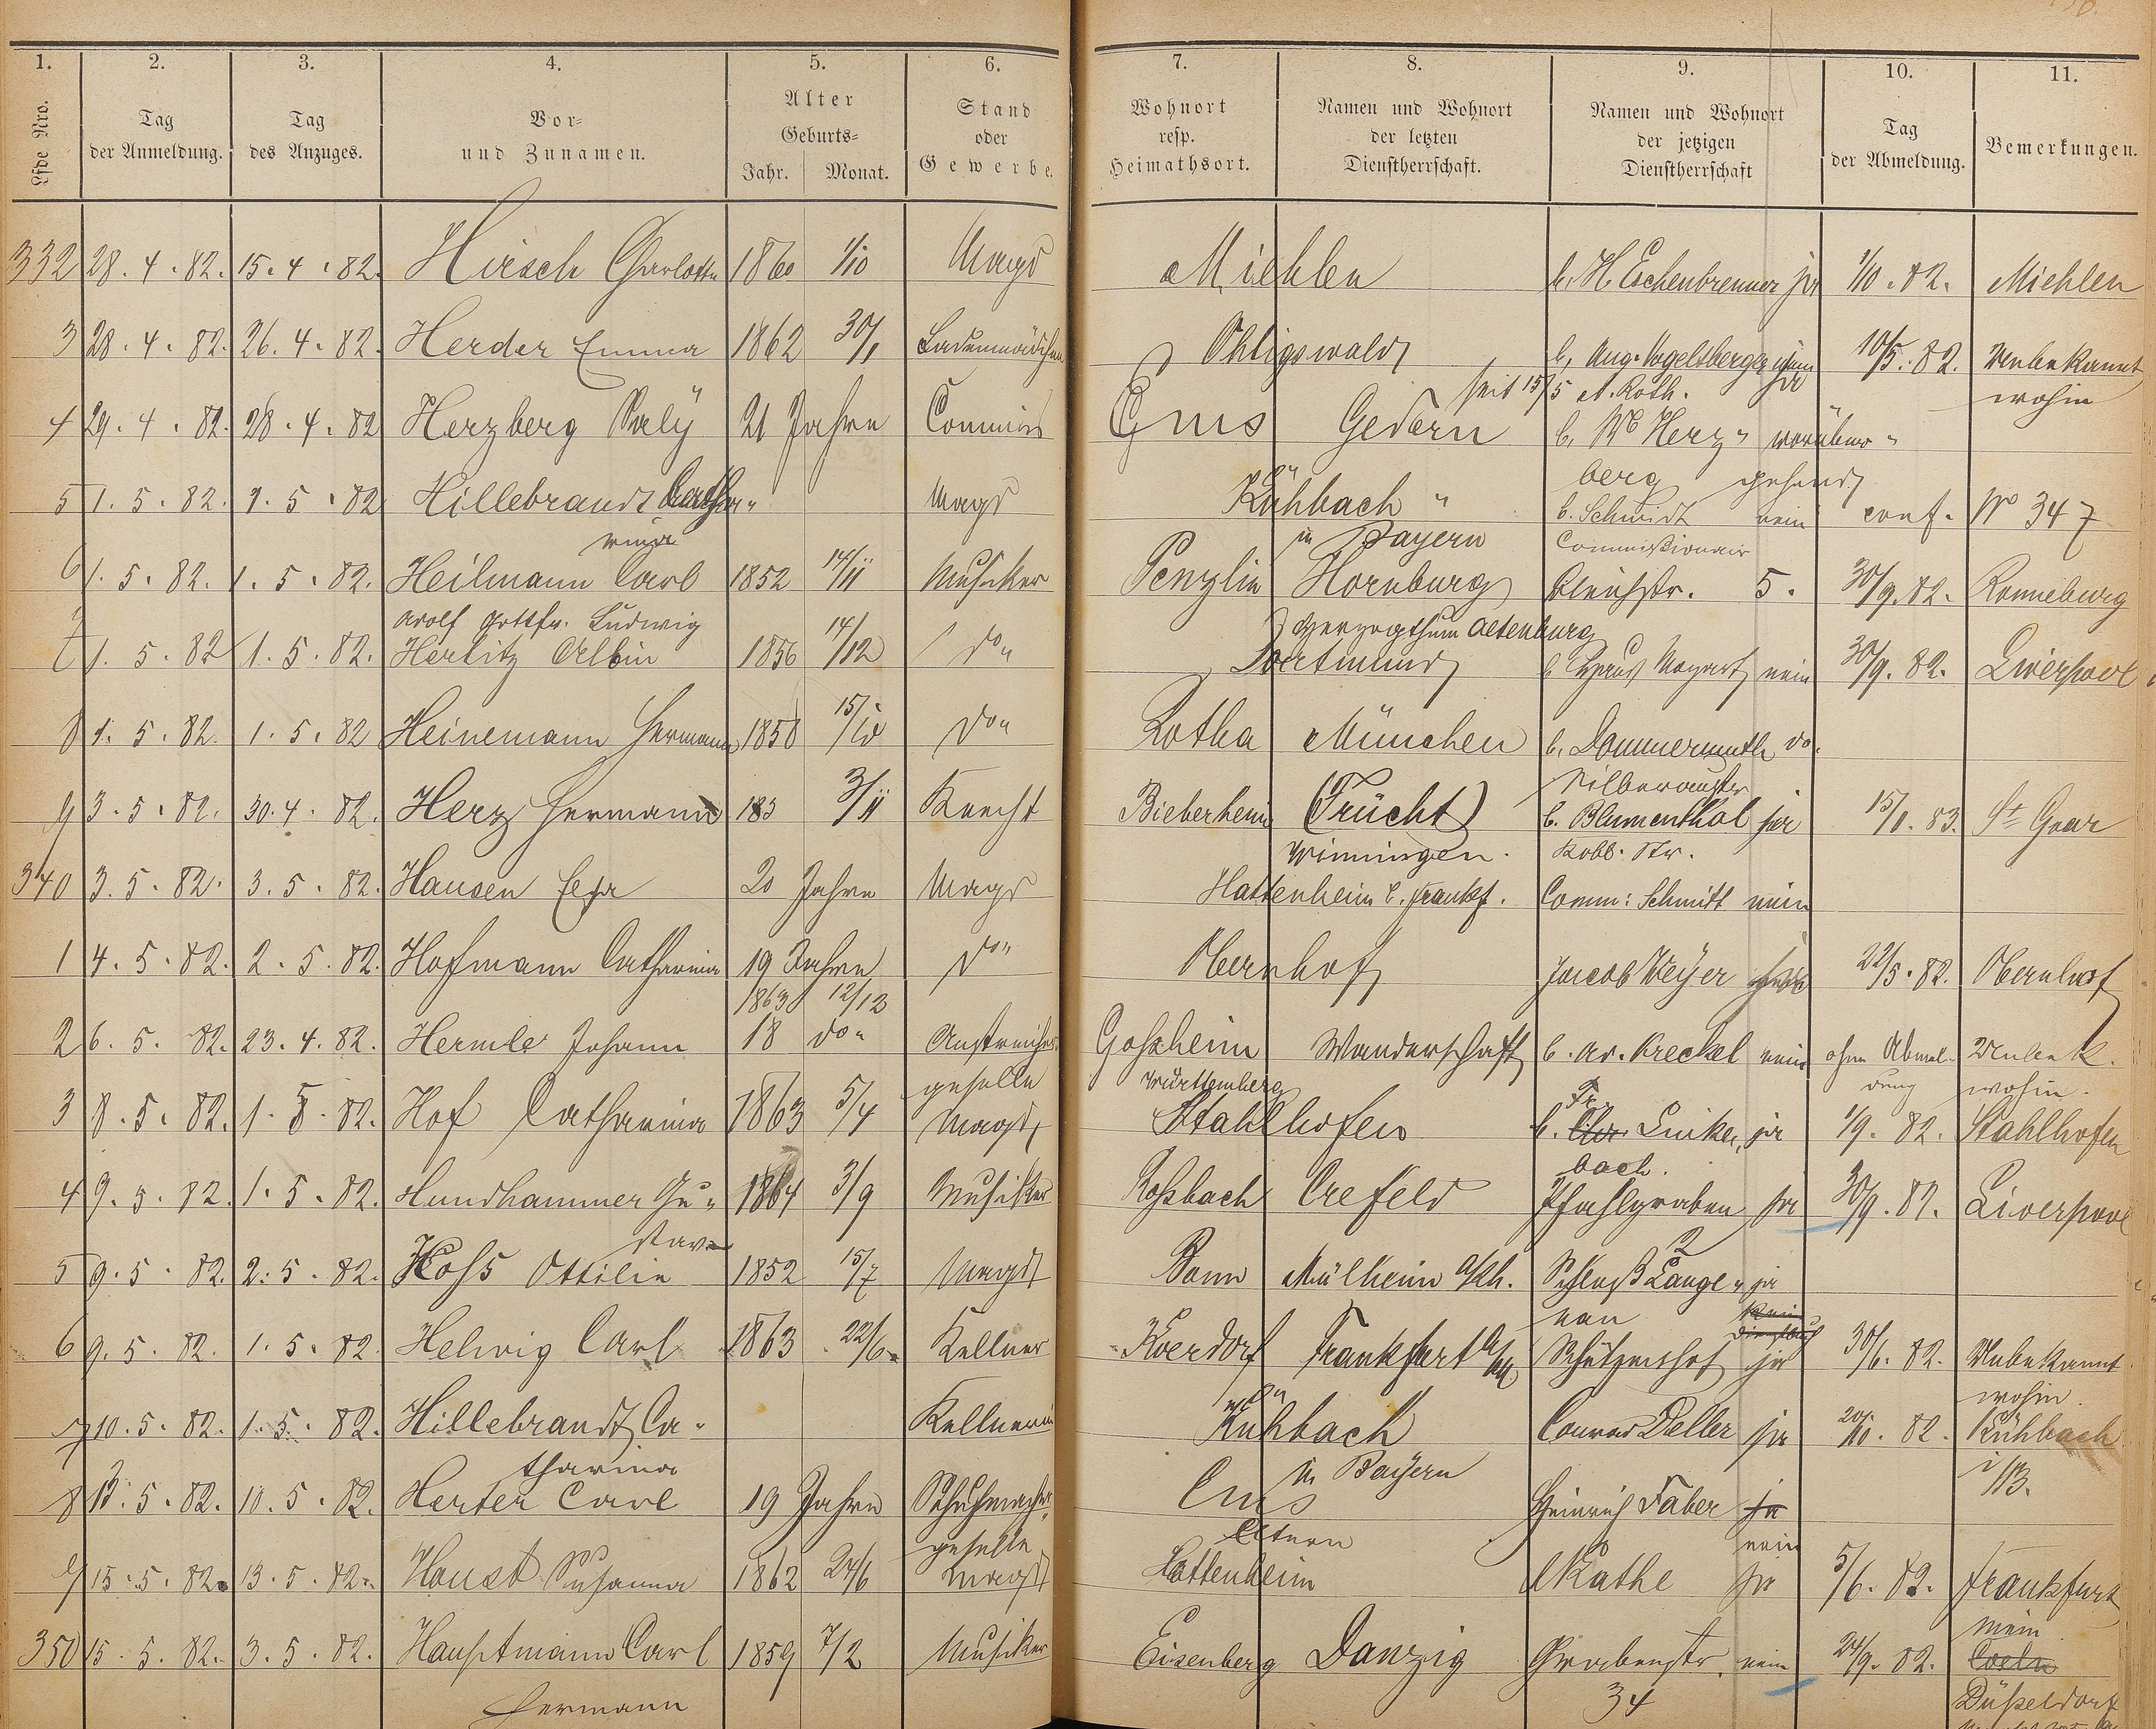 1. 2. 3. 4. 5. 6. 7. 8. 9. 10. 11.
Lfde Nro. | Tag der Anmeldung. | Tag des Anzuges. | Vor- und Zunamen. | Alter Geburts- Jahr. Monat. | Stand oder Gewerbe. | Wohnort resp. Heimathsort. | Namen und Wohnort der letzten Dienstherrschaft. | Namen und Wohnort der jetzigen Dienstherrschaft | Tag der Abmeldung. | Bemerkungen.
332 28.4.82. 15.4.82. Hirsch Charlotte 1860 1/10 Magd Miehlen b. H. Eschenbrenner ja 1/10.82. Miehlen
3 28.4.82. 26.4.82. Herder Emma 1862 30/1 Ladenmädchen Ohligswald b. Aug. Vogelsberger 10/5.82. Unbekannt
seit 15/5 A. Roth. ja wohin
4 29.4.82. 28.4.82 Herzberg Saly 21 Jahre Commis Ems Gedern b. Herz- vorüber-
berg gehend
5 1.5.82. 1.5.82 Hillebrandt Catha- Magd Kühbach b. Schmidt nein conf. No 347
rina in Bayern Commissionair
6 1.5.82. 1.5.82. Heilmann Carl 1852 14/11 Musiker Penzlin Hornburg Bleichstr. 5. 30/9.82. Ronneburg
Adolf Gottfr. Ludwig Herzogthum Altenburg
7 1.5.82 1.5.82. Herlitz Albin 1856 14/12 do " Dortmund b. Mozart nein 30/9.82. Liverpool
8 1.5.82. 1.5.82 Heinemann Hermann 1858 15/10 do " Rotha München b. Dommermuth do.
Silberaustr
9 3.5.82. 30.4.82. Herz Hermann 183 3/11 Knecht Bieberheim (Frücht) b. Blumenthal ja 15/1.83. St Goar
Winningen. Kobl. Str.
340 3.5.82. 3.5.82. Hansen Eva 20 Jahre Magd Hattenheim b. Frankf. Comm: Schmitt nein
1 4.5.82. 2.5.82. Hofmann Catharina 19 Jahre do " Obernhof Jacob Weyer 22/5.82. Obernhof
1863 12/12
2 6.5.82. 23.4.82. Hermle Johann 18 do " Anstreicher- Gosheim Wanderschaft b. Ad. Kreckel nein ohne Abmel- Unbek.
geselle Württemberg dung wohin.
3 8.5.82. 1.5.82. Hof Catharina 1863 5/4 Magd Stahlhofen b. Fr. Linken- ja 1/9.82. Stahlhofen
bach.
4 9.5.82. 1.5.82. Hundhammer Gu- 1864 3/9 Musiker Roßbach Crefeld Pfahlgraben ja 30/9.82. Liverpool
stav 2
5 9.5.82. 2.5.82. Hoß Ottilie 1852 15/7 Magd Bonn Mülheim a/Rh. Schloß Lange- ja
nau kein Dienstbuch
6 9.5.82. 1.5.82 Helwig Carl 1863 22/6 Kellner Koerdorf Frankfurt a/M Schützenhof ja 30/6.82. Unbekannt
wohin.
7 10.5.82. 1.5.82. Hillebrandt Ca- Kellnerin Kühbach Conrad Deller ja 20/10.82. Kühbach
tharina in Bayern i/B.
8 13.5.82. 10.5.82. Herter Carl 19 Jahre Schuhmacher- Ems Heinrich Faber ja
geselle Eltern nein
9 15.5.82. 13.5.82. Hanst Susanna 1862 24/6 Magd Hattenheim A Käthe ja 5/6.82. Frankfurt
Main
350 15.5.82. 3.5.82. Hauptmann Carl 1859 7/2 Musiker Eisenberg Danzig Grabenstr. nein 24/9.82. Coeln
Hermann 34 Düsseldorf